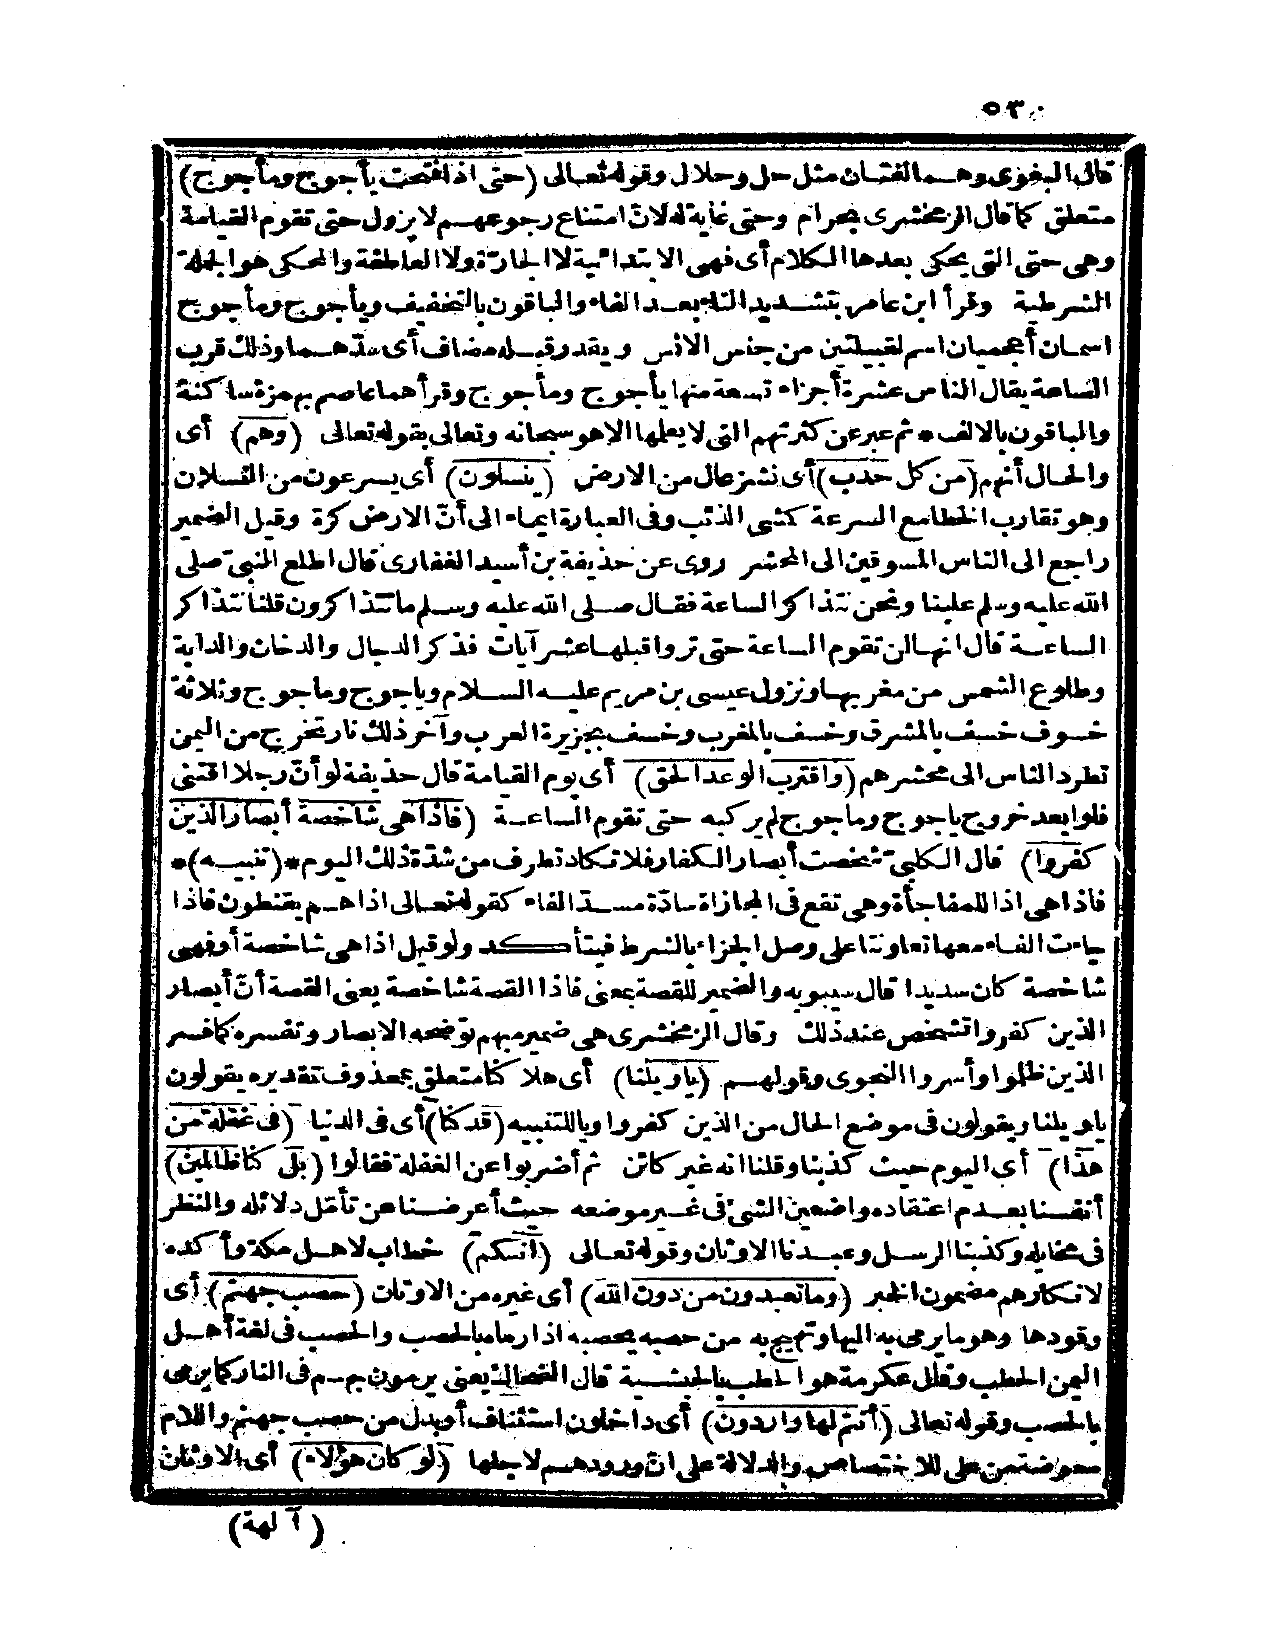 ٥٣٠
قال البغوى وهما لغتان مثل حل وحلال وقوله تعالى (حتى اذا فتحت يأجوج ومأجوج)
متعلق كما قال الزمخشرى بحرام وحتى غاية له لانّ امتناع رجوعهم لا يزول حتى تقوم القيامة
وهى حتى التى يحكى بعدها الكلام أى فهى الابتدائية لا الجارّة ولا العاطفة والمحكى هو الجملة
الشرطية وقرأ ابن عامر بتشديد التاء بعد الفاء والباقون بالتخفيف ويأجوج ومأجوج
اسمان أعجميان اسم لقبيلتين من جنس الانس ويقدر قبله مضاف أى سدّهما وذلك قرب
الساعة يقال الناس عشرة أجزاء تسعة منها يأجوج ومأجوج وقرأهما عاصم بهمزة ساكنة
والباقون بالالف * ثم عبر عن كثرتهم التى لا يعلمها الا هو سبحانه وتعالى بقوله تعالى (وهم) أى
والحال أنهم (من كل حدب) أى نشز عال من الارض (ينسلون) أى يسرعون من النسلان
وهو تقارب الخطا مع السرعة كمشى الذئب وفى العبارة ايماء الى أنّ الارض كرة وقيل الضمير
راجع الى الناس المسوقين الى المحشر روى عن حذيفة بن أسيد الغفارى قال اطلع النبىّ صلى
الله عليه وسلم علينا ونحن نتذاكر الساعة فقال صلى الله عليه وسلم ما تتذاكرون قلنا نتذاكر
الساعة قال انها لن تقوم الساعة حتى تروا قبلها عشر آيات فذكر الدجال والدخان والدابة
وطلوع الشمس من مغربها ونزول عيسى بن مريم عليه السلام وياجوج وماجوج وثلاثة
خسوف خسف بالمشرق وخسف بالمغرب وخسف بجزيرة العرب وآخر ذلك نار تخرج من اليمن
تطرد الناس الى محشرهم (واقترب الوعد الحق) أى يوم القيامة قال حذيفة لو أنّ رجلا اقتنى
فلوا بعد خروج ياجوج وماجوج لم يركبه حتى تقوم الساعة (فاذا هى شاخصة أبصار الذين
كفروا) قال الكلبىّ شخصت أبصار الكفار فلا تكاد تطرف من شدّة ذلك اليوم *(تنبيه)*
فاذا هى اذا للمفاجأة وهى تقع فى المجازاة سادّة مسدّ الفاء كقوله تعالى اذا هم يقنطون فاذا
جاءت الفاء معها تعاونتا على وصل الجزاء بالشرط فيتأكد ولو قيل اذا هى شاخصة أو فهى
شاخصة كان سديدا قال سيبويه والضمير للقصة بمعنى فاذا القصة شاخصة يعنى القصة أنّ أبصار
الذين كفروا تشخص عند ذلك وقال الزمخشرى هى ضمير مبهم توضحه الابصار وتفسره كما فسر
الذين ظلموا وأسروا النجوى وقولهم (يا ويلنا) أى هلاكنا متعلق بمحذوف تقديره يقولون
يا ويلنا ويقولون فى موضع الحال من الذين كفروا ويا للتنبيه (قد كنا) أى فى الدنيا (فى غفلة من
هذا) أى اليوم حيث كذبنا وقلنا انه غير كائن ثم أضربوا عن الغفلة فقالوا (بلى كنا ظالمين)
أنفسنا بعدم اعتقاده واضعين الشىء فى غير موضعه حيث أعرضنا عن تأمّل دلائله والنظر
فى مخايله وكذبنا الرسل وعبدنا الاوثان وقوله تعالى (انكم) خطاب لاهل مكة وأكده
لانكارهم مضمون الخبر (وما تعبدون من دون الله) أى غيره من الاوثان (حصب جهنم) أى
وقودها وهو ما يرمى به اليها وتهيج به من حصبه يحصبه اذا رماه بالحصب والحصب فى لغة أهل
اليمن الحطب وقال عكرمة هو الحطب بالحبشية قال الضحاك يعنى يرمون بهم فى النار كما يرمى
بالحصب وقوله تعالى (أنتم لها واردون) أى داخلون استئناف أو بدل من حصب جهنم واللام
معوضة من على للاختصاص والدلالة على انّ ورودهم لاجلها (لو كان هؤلاء) أى الاوثان
(آلهة)